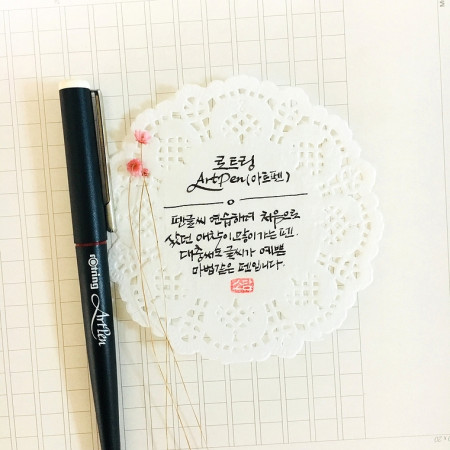 로트링
ArtPen(아트펜)
펜글씨 연습하며 처음으로
샀던 애착이 많이 가는 펜.
대충써도 글씨가 예쁨
마법같은 펜입니다.
rotring
ArtPen